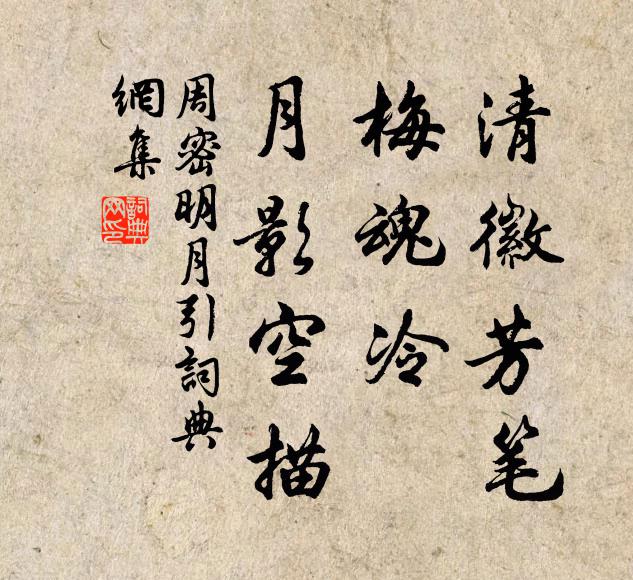 清徽芳笔
梅魂冷
月影空描
周密明月引詞典
網集
詞典
网印